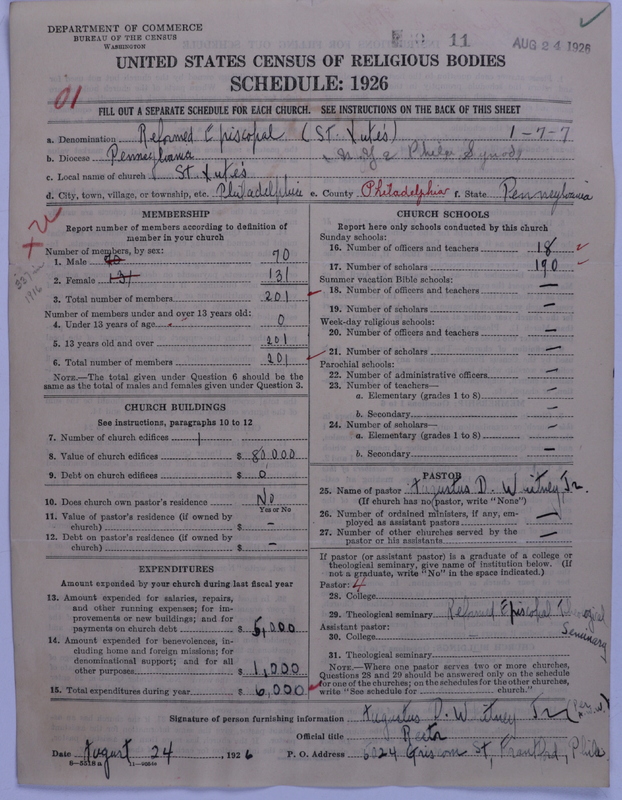 DEPARTMENT OF COMMERCE
BUREAU OF THE CENSUS
WASHINGTON
11
AUG 24 1926
UNITED STATES CENSUS OF RELIGIOUS BODIES
SCHEDULE: 1926
01
FILL OUT A SEPARATE SCHEDULE FOR EACH CHURCH. SEE INSTRUCTIONS ON THE BACK OF THIS SHEET
a. Denomination Reformed Episcopal (St. Luke's) 1-7-7
b. Diocese Pennsylvania N.Y & Phila Synod
c. Local name of church St. Luke's
d. City, town, village, or township, etc. Philadelphia e. County Philadelphia f. State Pennsylvania
MEMBERSHIP
Report number of members according to definition of member in your church
Number of members, by sex:
1. Male 70
2. Female 131 131
3. Total number of members 201
Number of members under and over 13 years old:
4. Under 13 years of age 0
5. 13 years old and over 201
6. Total number of members 201
NOTE.—The total given under Question 6 should be the same as the total of males and females given under Question 3.
1916
CHURCH BUILDINGS
See instructions, paragraphs 10 to 12
7. Number of church edifices 1
8. Value of church edifices $ 80,000
9. Debt on church edifices $ 0
10. Does church own pastor's residence No
Yes or No
11. Value of pastor's residence (if owned by church) $ —
12. Debt on pastor's residence (if owned by church) $ —
EXPENDITURES
Amount expended by your church during last fiscal year
13. Amount expended for salaries, repairs, and other running expenses; for improvements or new buildings; and for payments on church debt $ 5,000
14. Amount expended for benevolences, including home and foreign missions; for denominational support; and for all other purposes $ 1,000
15. Total expenditures during year $ 6,000
CHURCH SCHOOLS
Report here only schools conducted by this church
Sunday schools:
16. Number of officers and teachers 18
17. Number of scholars 190
Summer vacation Bible schools:
18. Number of officers and teachers —
19. Number of scholars —
Week-day religious schools:
20. Number of officers and teachers —
21. Number of scholars —
Parochial schools:
22. Number of administrative officers —
23. Number of teachers—
a. Elementary (grades 1 to 8) —
b. Secondary —
24. Number of scholars—
a. Elementary (grades 1 to 8) —
b. Secondary —
PASTOR
25. Name of pastor Augustus D. Whitney Jr.
(If church has no pastor, write "None")
26. Number of ordained ministers, if any, employed as assistant pastors —
27. Number of other churches served by the pastor or his assistants —
If pastor (or assistant pastor) is a graduate of a college or theological seminary, give name of institution below. (If not a graduate, write "No" in the space indicated.)
Pastor: 4
28. College
29. Theological seminary Reformed Episcopal Theological Seminary
Assistant pastor:
30. College
31. Theological seminary
NOTE.—Where one pastor serves two or more churches, Questions 28 and 29 should be answered only on the schedule for one of the churches; on the schedules for the other churches, write "See schedule for church."
Signature of person furnishing information Augustus D. Whitney Jr
Official title Rector
Date August 24, 1926 P. O. Address 5024 Griscom St, Frankford, Phila
8-5518a